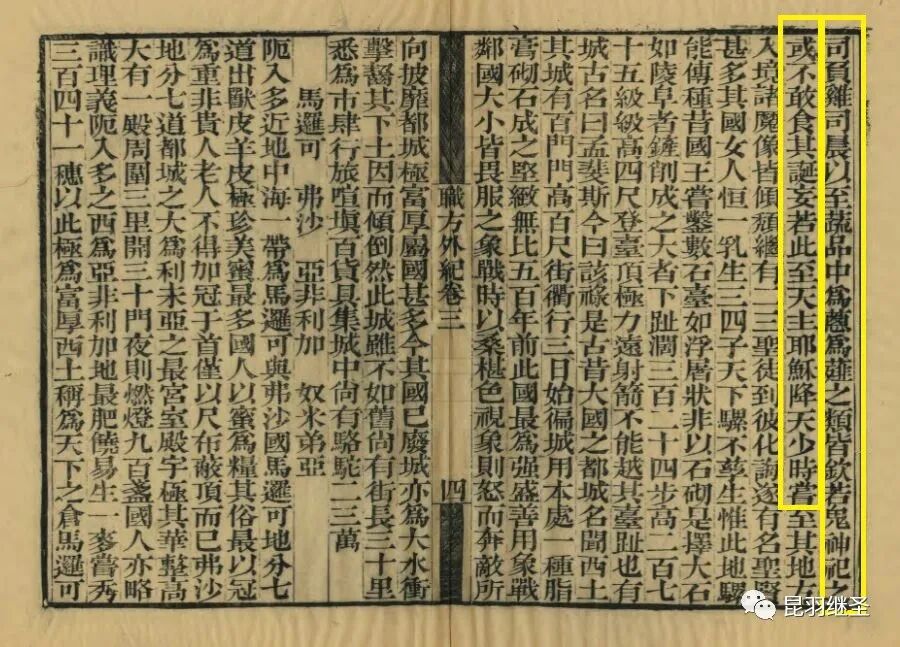 司負雞司晨以至蔬品中為蔥為薤之類皆欽若鬼神祀
或不敢食其誕妄若此至天主耶穌降天少時嘗至其地
入境諸魔像皆傾頹繼有二三聖徒到彼化誨遂有名聖賢
甚多其國女人恒一乳生三四子天下騾不孳生惟此地騾
能傳種昔國王嘗鑿數石臺如浮層狀非以石砌是擇大石
如陵阜者鏟削成之大者下趾濶三百二十四步高二百七
十五級級高四尺登臺頂極力遠射箭不能越其臺趾也有
城古名曰孟斐斯今曰該祿是古昔大國之都城名聞西土
其城有百門門高百尺街衢行三日始徧城用本處一種脂
膏砌石成之堅緻無比五百年前此國最為强盛善用象戰
鄰國大小皆畏服之象戰時以桑椹色視象則怒而奔敵所
職方外紀卷三 四
向披靡都城極富厚屬國甚多今其國已廢城亦為大水衝
擊齧其下土因而傾倒然此城雖不如舊尚有街長三十里
悉為市肆行旅喧塡百貨具集城中尚有駱駝二三萬
馬邏可 弗沙 亞非利加 奴米弟亞
阨入多近地中海一帶為馬邏可與弗沙國馬邏可地分七
道出獸皮羊皮極珍美蜜最多國人以蜜為糧其俗最以冠
為重非貴人老人不得加冠于首僅以尺布蔽頂而已弗沙
地分七道都城之大為利未亞之最宮室殿宇極其華整高
大有一殿周圍三里開三十門夜則燃燈九百盞國人亦略
識理義阨入多之西為亞非利加地最肥饒易生一麥嘗秀
三百四十一穗以此極為富厚西土稱為天下之倉馬邏可
昆羽继圣